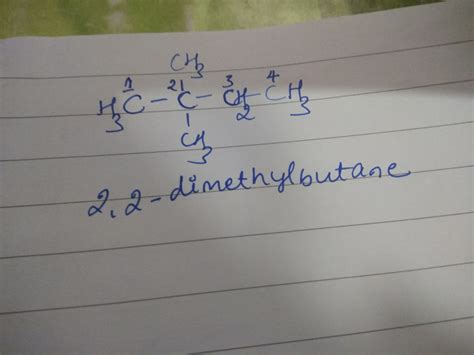 CH3
1 2 3 4
H3C - C - CH2 - CH3
CH3
2,2-dimethylbutane